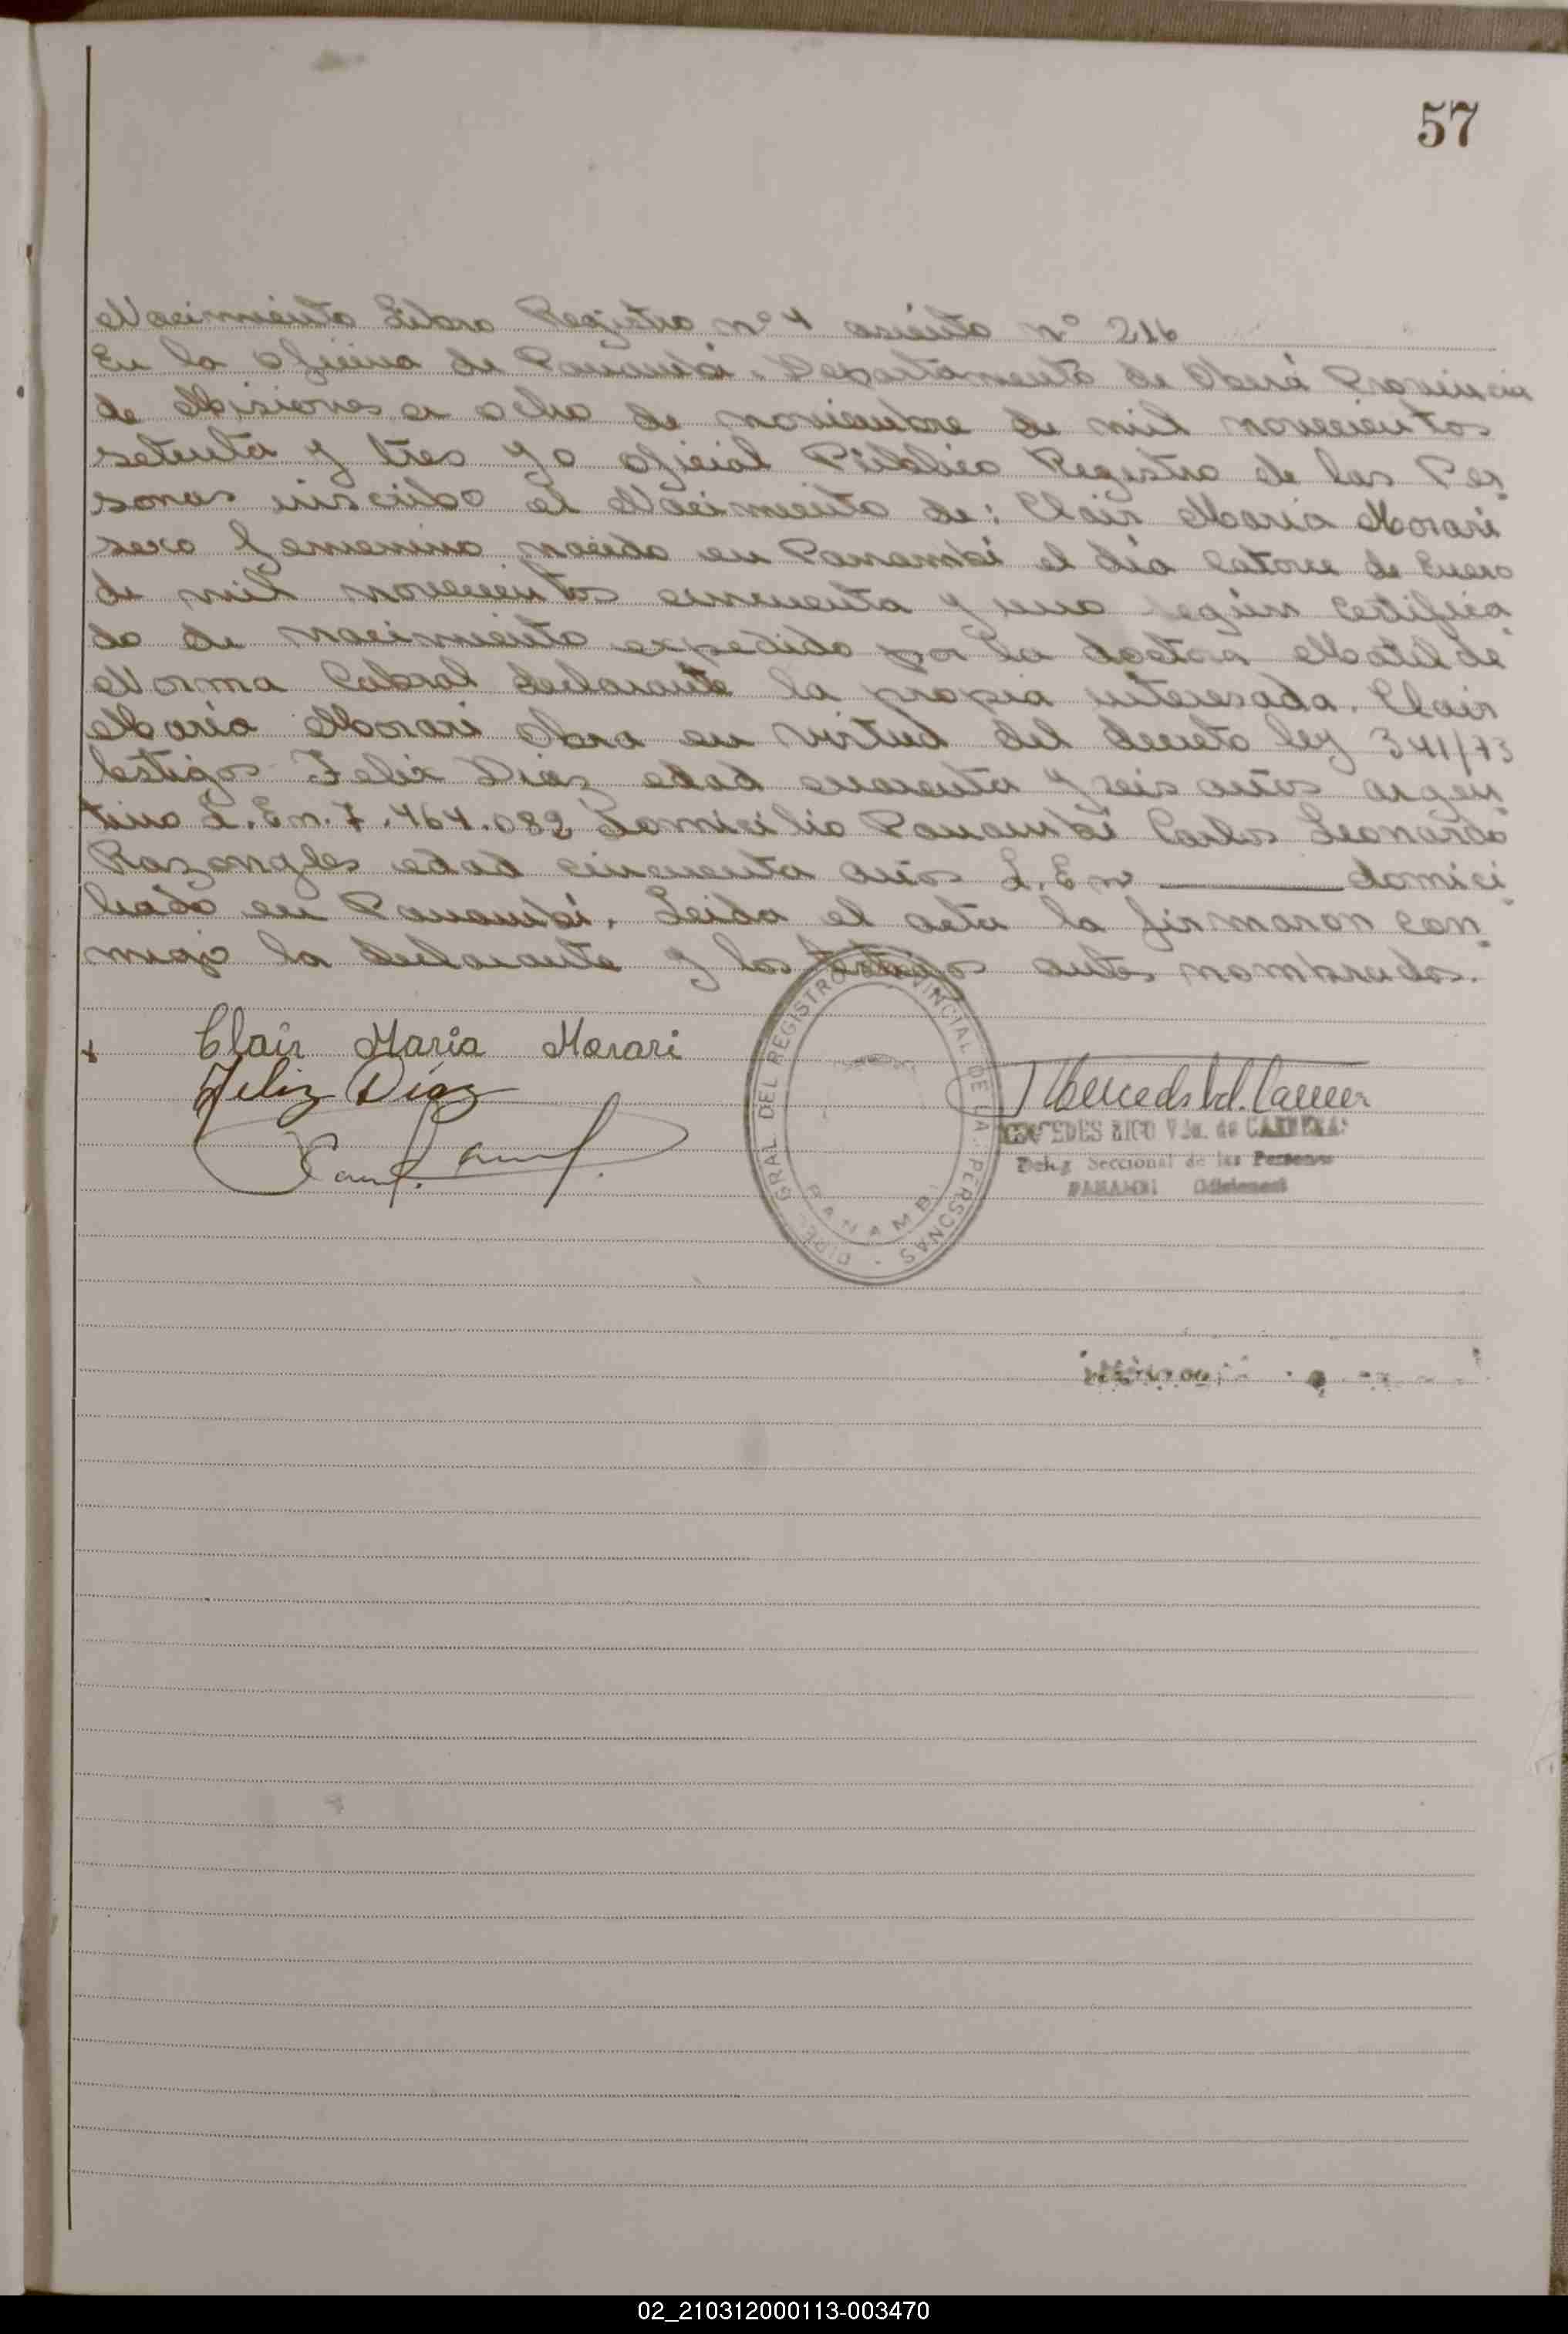 57
Nacimiento Libro Registro nº 4 asiento nº 216
En la oficina de Panambí. Departamento de Oberá Provincia
de Misiones a ocho de noviembre de mil novecientos
setenta y tres yo oficial Público Registro de las Per
sonas inscribo el Nacimiento de: Clair Maria Morari
sexo femenino nacida en Panambí el día Catorce de Enero
de mil novecientos cincuenta y uno según certifica
do de nacimiento expedido por la doctora Matilde
Norma Cabral declarante la propia interesada. Clair
María Morari Obra en virtud del decreto ley 341/73
testigos Felix Diaz edad cuarenta y seis años argen
tino L.E n. 7.464.082 Domicilio Panambí Carlos Leonardo
Razongles edad cincuenta años L.E nº domici
liado en Panambí. Leida el acta la firmaron con
migo la declarante y los testigos antes nombrados.
Clair Maria Morari
Feliz Díaz
DIREC. GRAL DEL REGISTRO PROVINCIAL DE LAS PERSONAS
PANAMBI
MERCEDES RICO Vda. de CABRERA
Deleg. Seccional de las Personas
PANAMBI (Misiones)
02_210312000113-003470